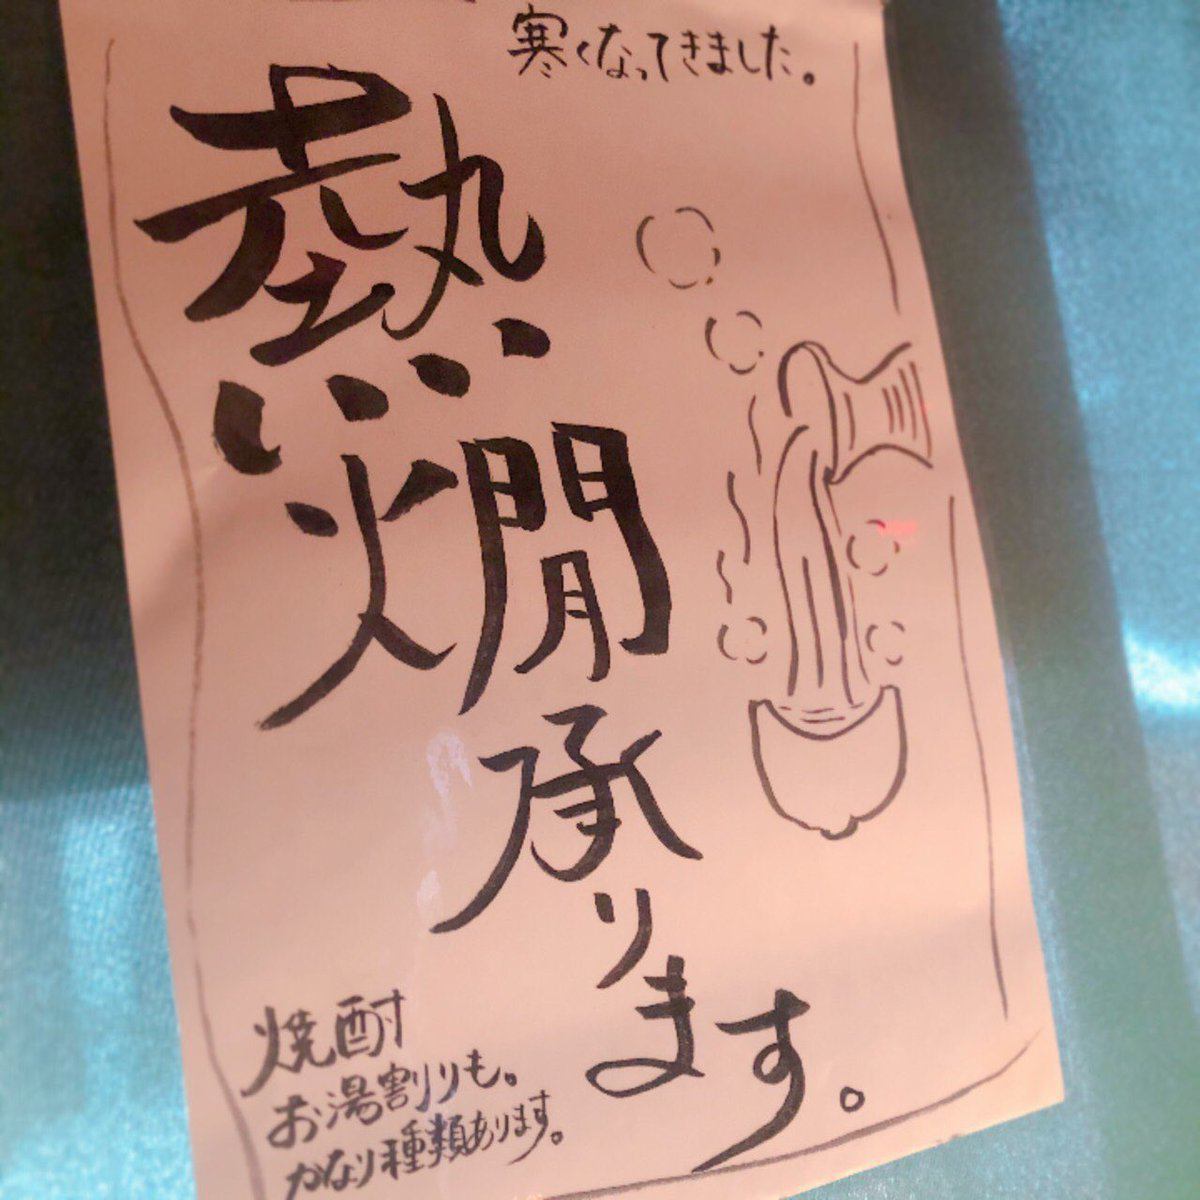 寒くなってきました。
熱燗承ります。
焼酎
お湯割りも。
かなり種類あります。